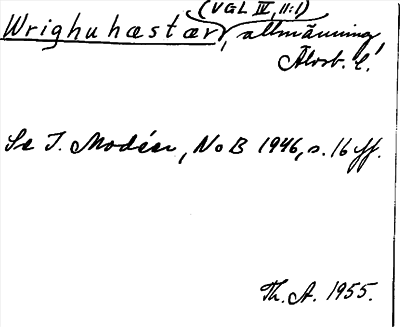 (VGL IV, 11:1)
Wrighuhæstær, allmänning
Älvsb. l.
Se I. Modéer, NoB 1946, s. 16 ff.
Th. A. 1955.